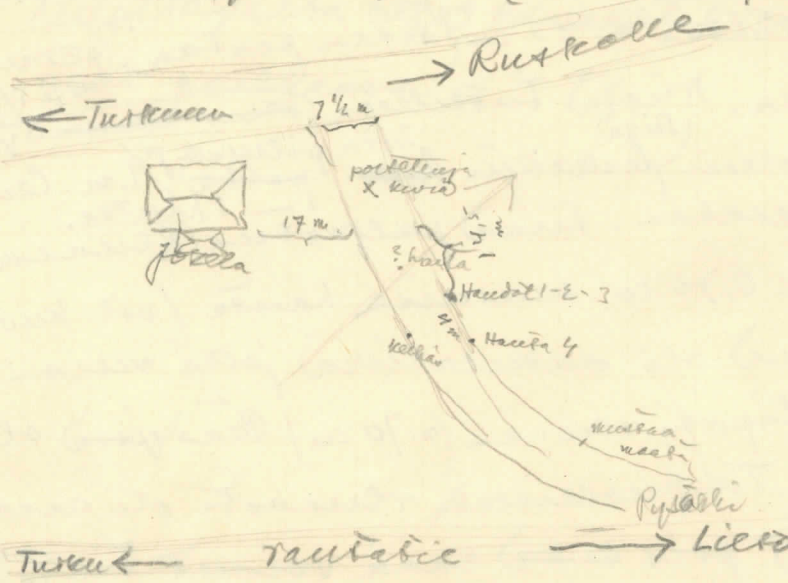 → Ruskolle
← Turkuun
7 1/2 m.
poltettuja
x kiviä
17 m.
Jokela
5 1/2 m
? hauta
Haudat 1-2-3
4 m
Hauta 4
keihäs
mustaa
maata
Pysäkki
Turku ← rautatie → Lieto